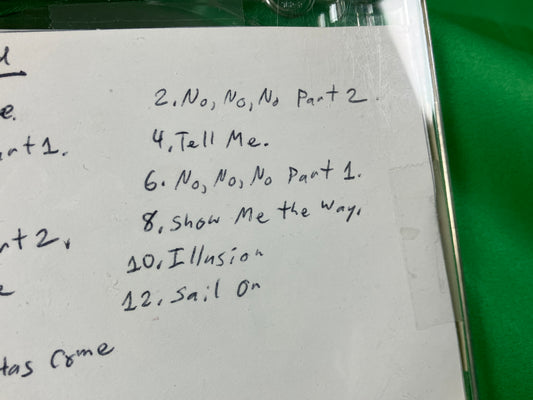 e.
2. No, No, No Part 2.
art 1.
4. Tell Me.
6. No, No, No Part 1.
8. Show Me the Way.
rt 2.
10. Illusion
e
12. Sail On
Has Come